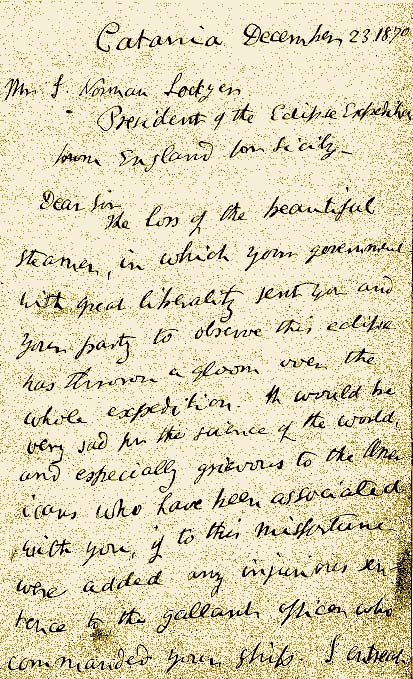 Catania December 23. 1870
Mr J. Norman Lockyer
President of the Eclipse Expedition
from England for Sicily—
Dear Sir
The loss of the beautiful
steamer, in which your government
with great liberality sent you and
your party to observe this eclipse
has thrown a gloom over the
whole expedition. It would be
very sad for the science of the world,
and especially grievous to the Amer
icans who have been associated
with you, if to this misfortune
were added any injurious sen
tence to the gallant officer who
commanded your ship. I entreat